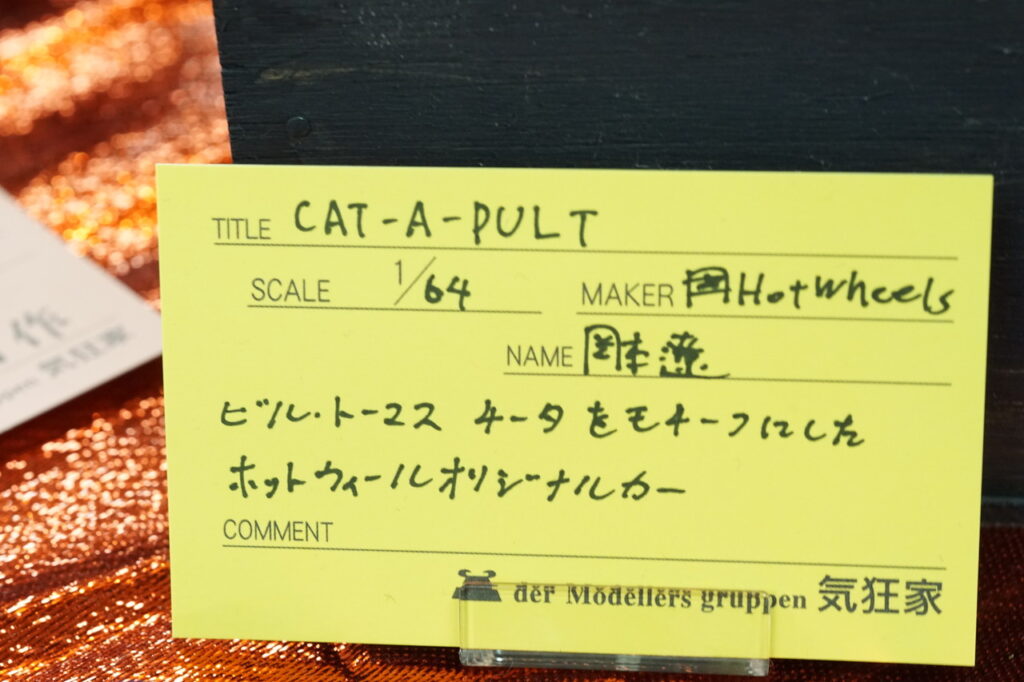 TITLE CAT-A-PULT
SCALE 1/64 MAKER HotWheels
NAME 岡本
ビル・トーマス チータをモチーフにした
ホットウィールオリジナルカー
COMMENT
der Modellers gruppen 気狂家
作
ppen 気狂家